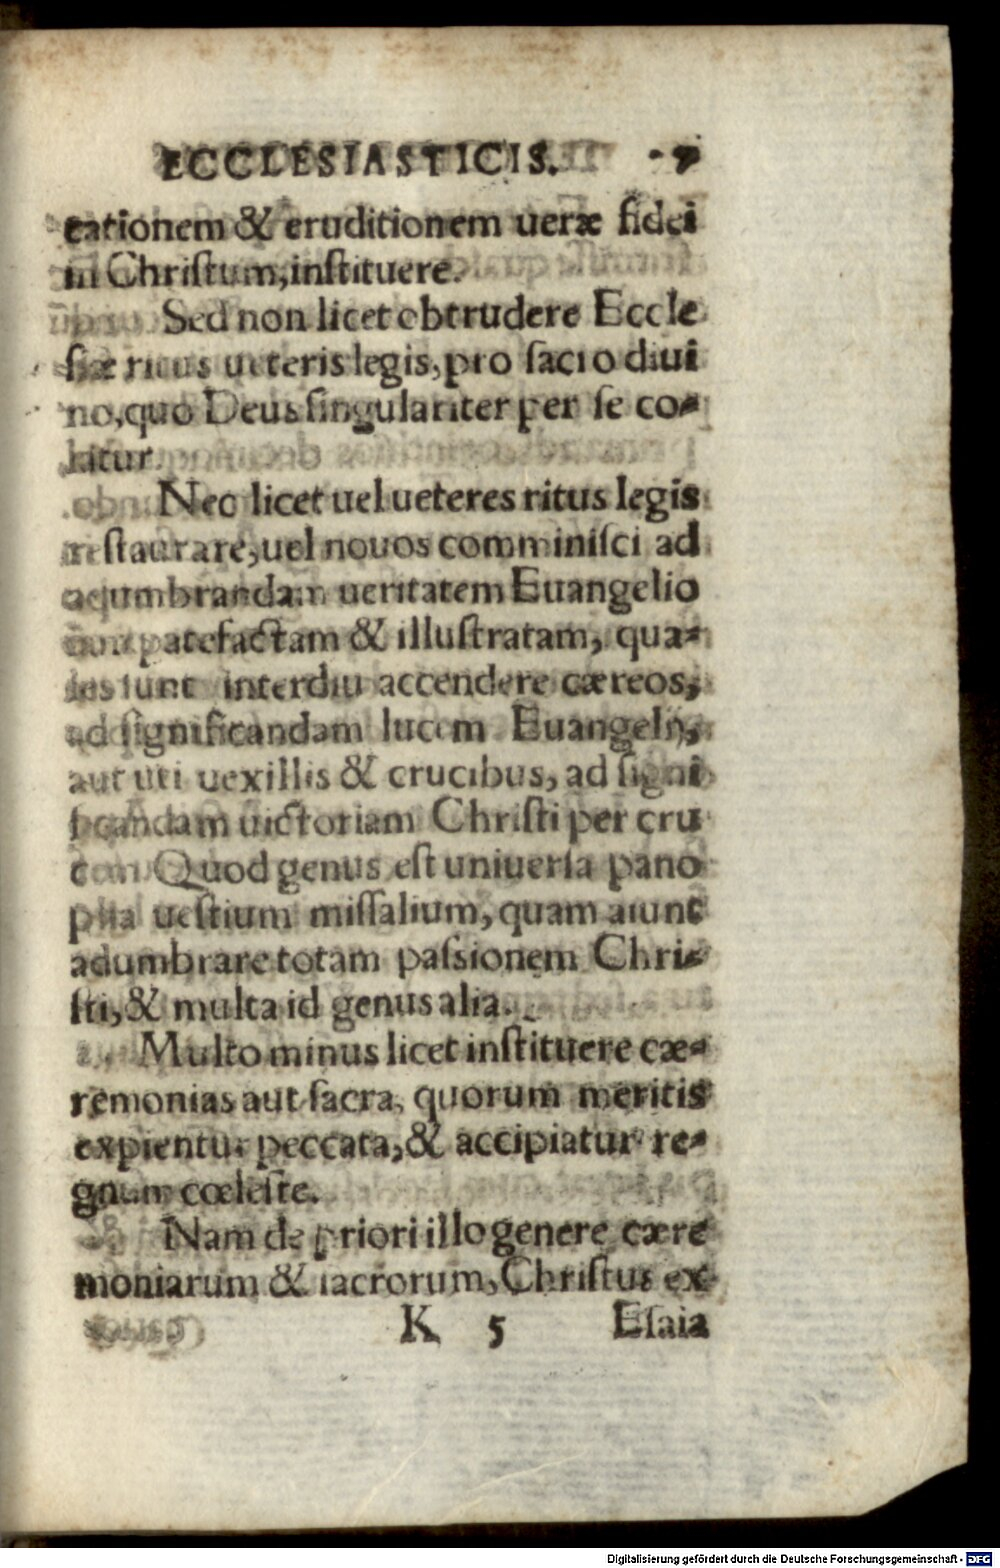 ECCLESIASTICIS.
cationem & eruditionem ueræ fidei
in Chriſtum, inſtituere.
Sed non licet obtrudere Eccle
ſiæ ritus ueteris legis, pro ſacro diui
no, quo Deus ſingulariter per ſe co-
latur.
Nec licet uel ueteres ritus legis
reſtaurare, uel nouos comminiſci ad
adumbrandam ueritatem Euangelio
patefactam & illuſtratam, qua-
les ſunt interdiu accendere cæreos,
ad ſignificandam lucem Euangelij,
aut uti uexillis & crucibus, ad ſigni
ficandam uictoriam Chriſti per cru
cem. Quod genus eſt uniuerſa pano
plia ueſtium miſſalium, quam aiunt
adumbrare totam paſsionem Chri-
ſti, & multa id genus alia.
Multo minus licet inſtituere cæ-
remonias aut ſacra, quorum meritis
expientur peccata, & accipiatur re-
gnum cœleſte.
Nam de priori illo genere cære
moniarum & ſacrorum, Chriſtus ex
K 5 Eſaia
Digitalisierung gefördert durch die Deutsche Forschungsgemeinschaft - DFG